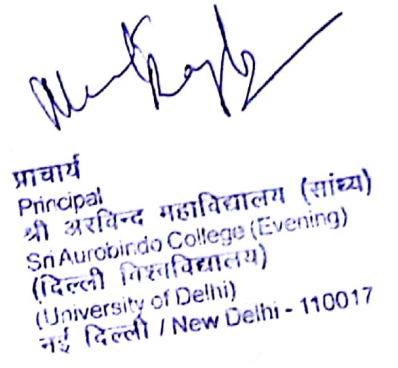 प्राचार्य
Principal
श्री अरविन्द महाविद्यालय (सांध्य)
Sri Aurobindo College (Evening)
(दिल्ली विश्वविद्यालय)
(University of Delhi)
नई दिल्ली / New Delhi - 110017